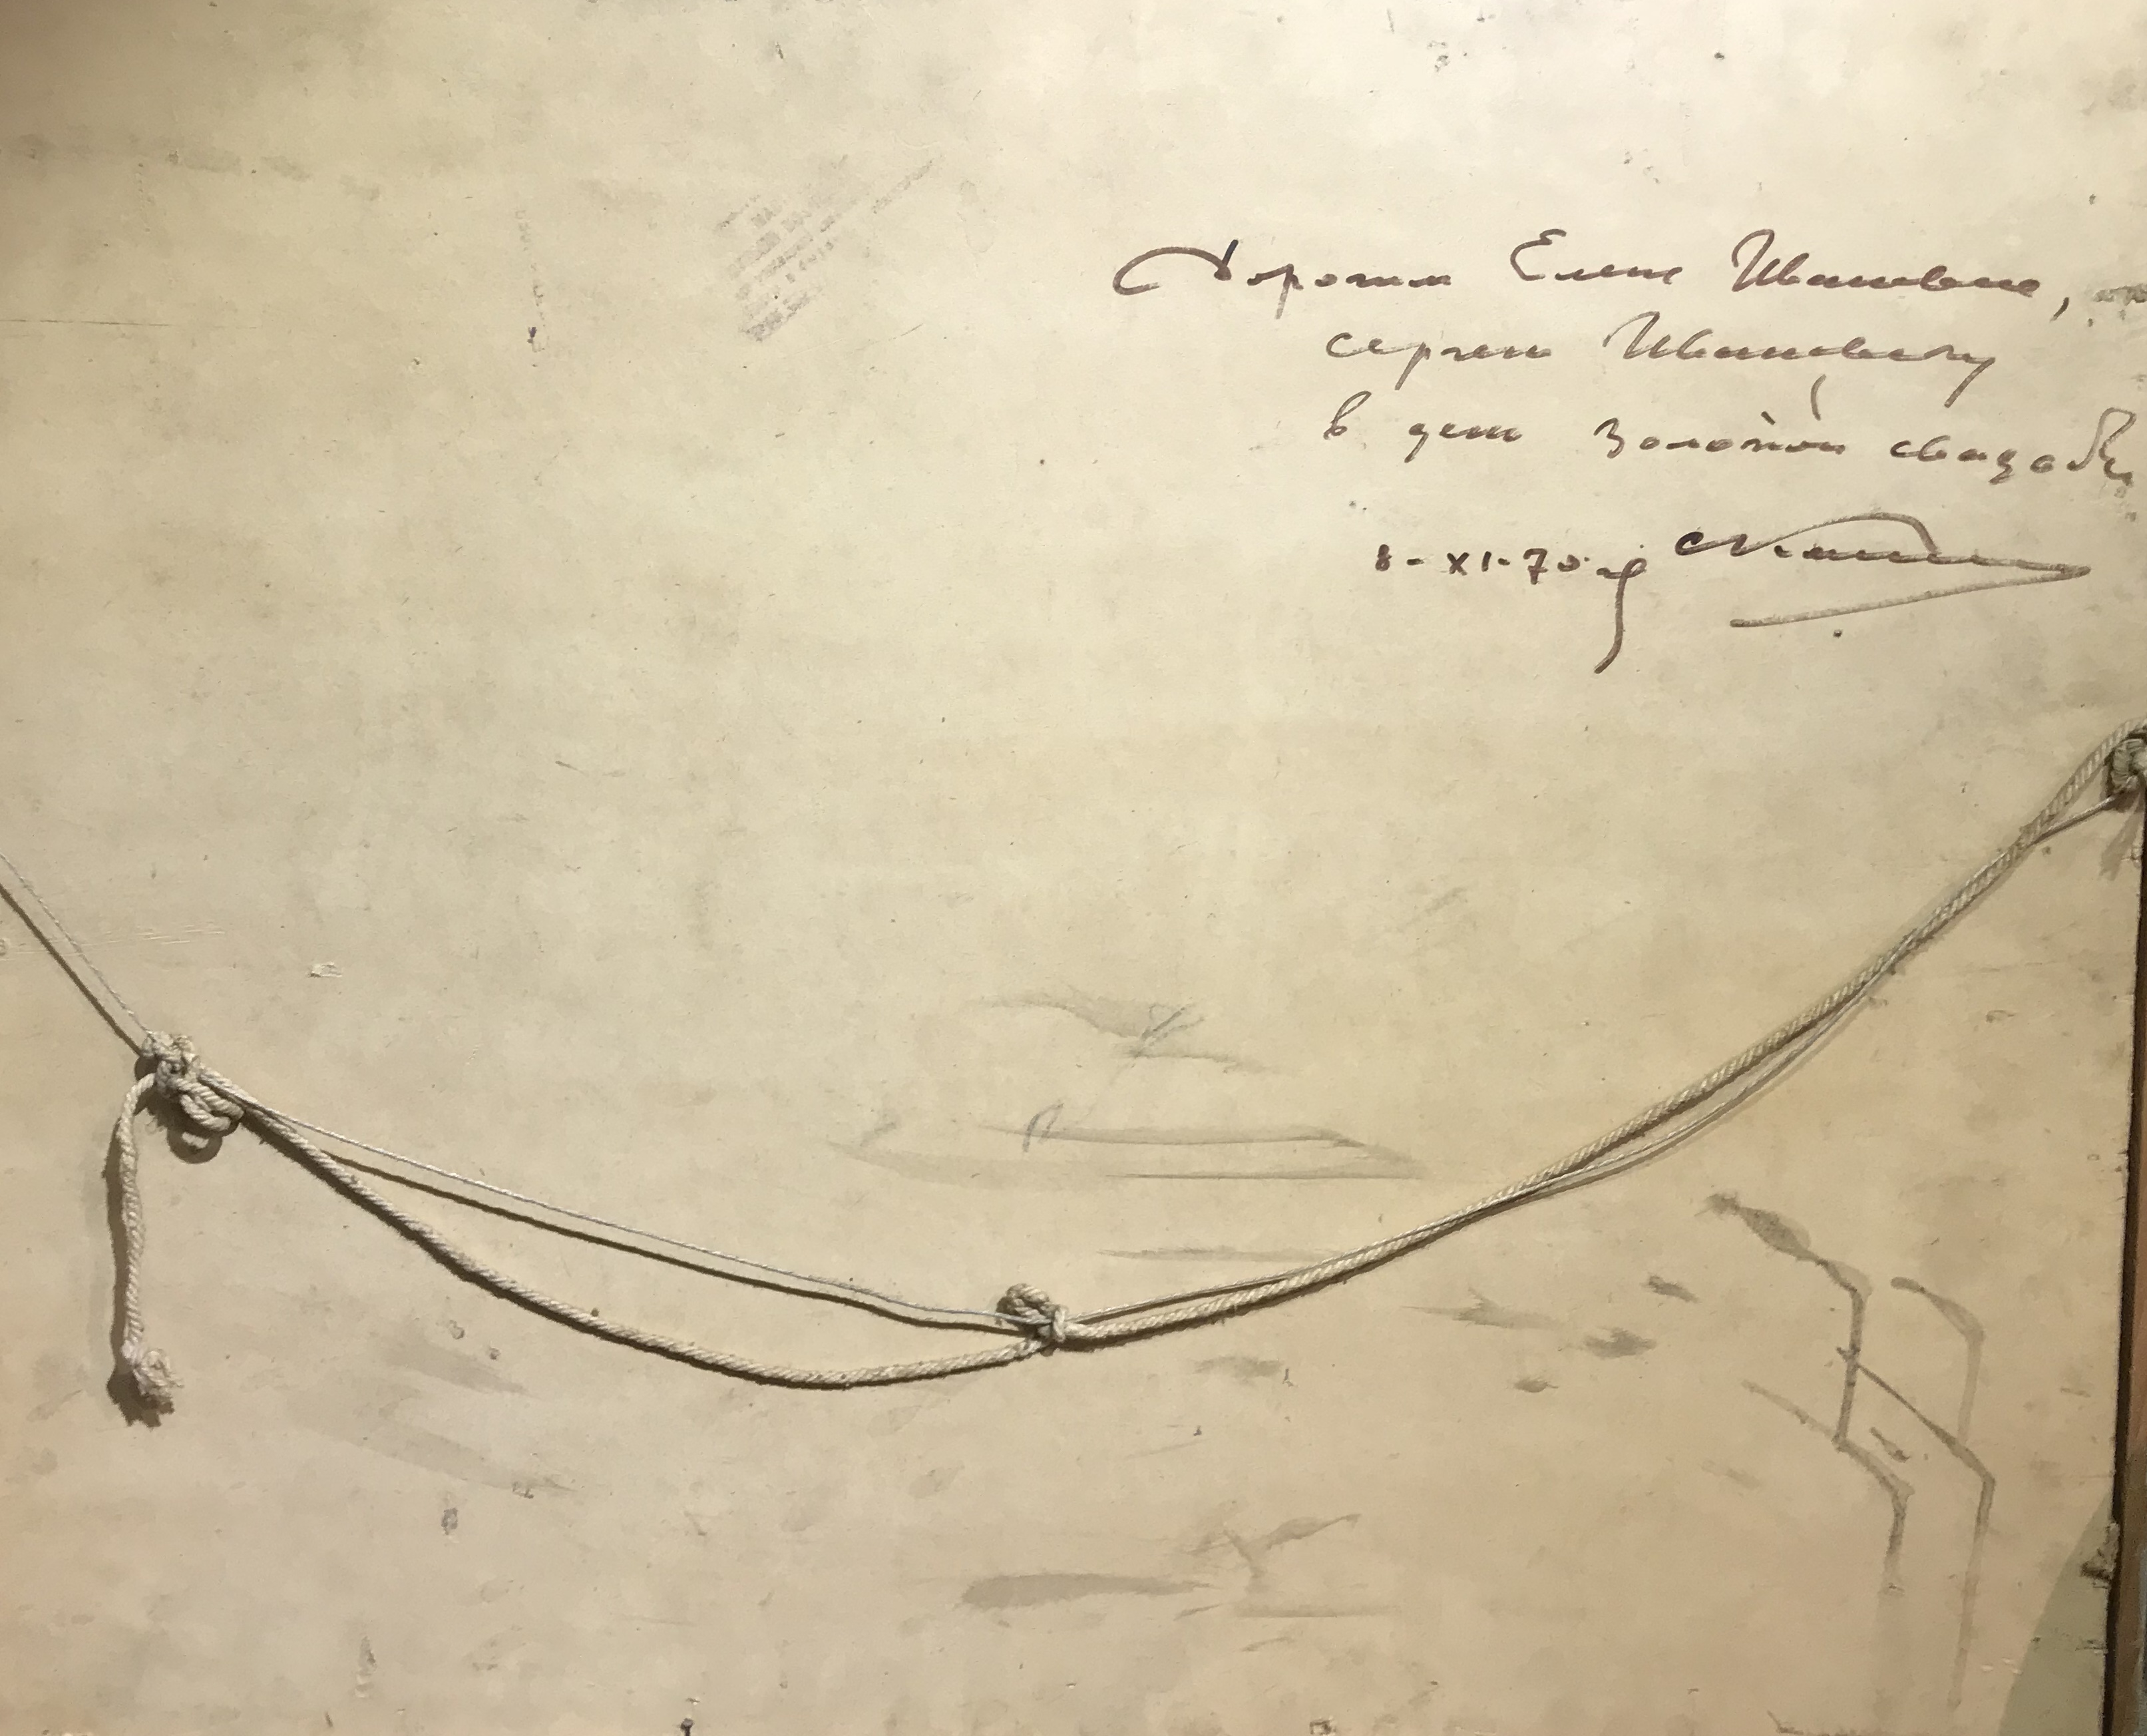 Дорогим Елене Ивановне,
Сергею Ивановичу
в день золотой свадьбы
8-XI-70 г.